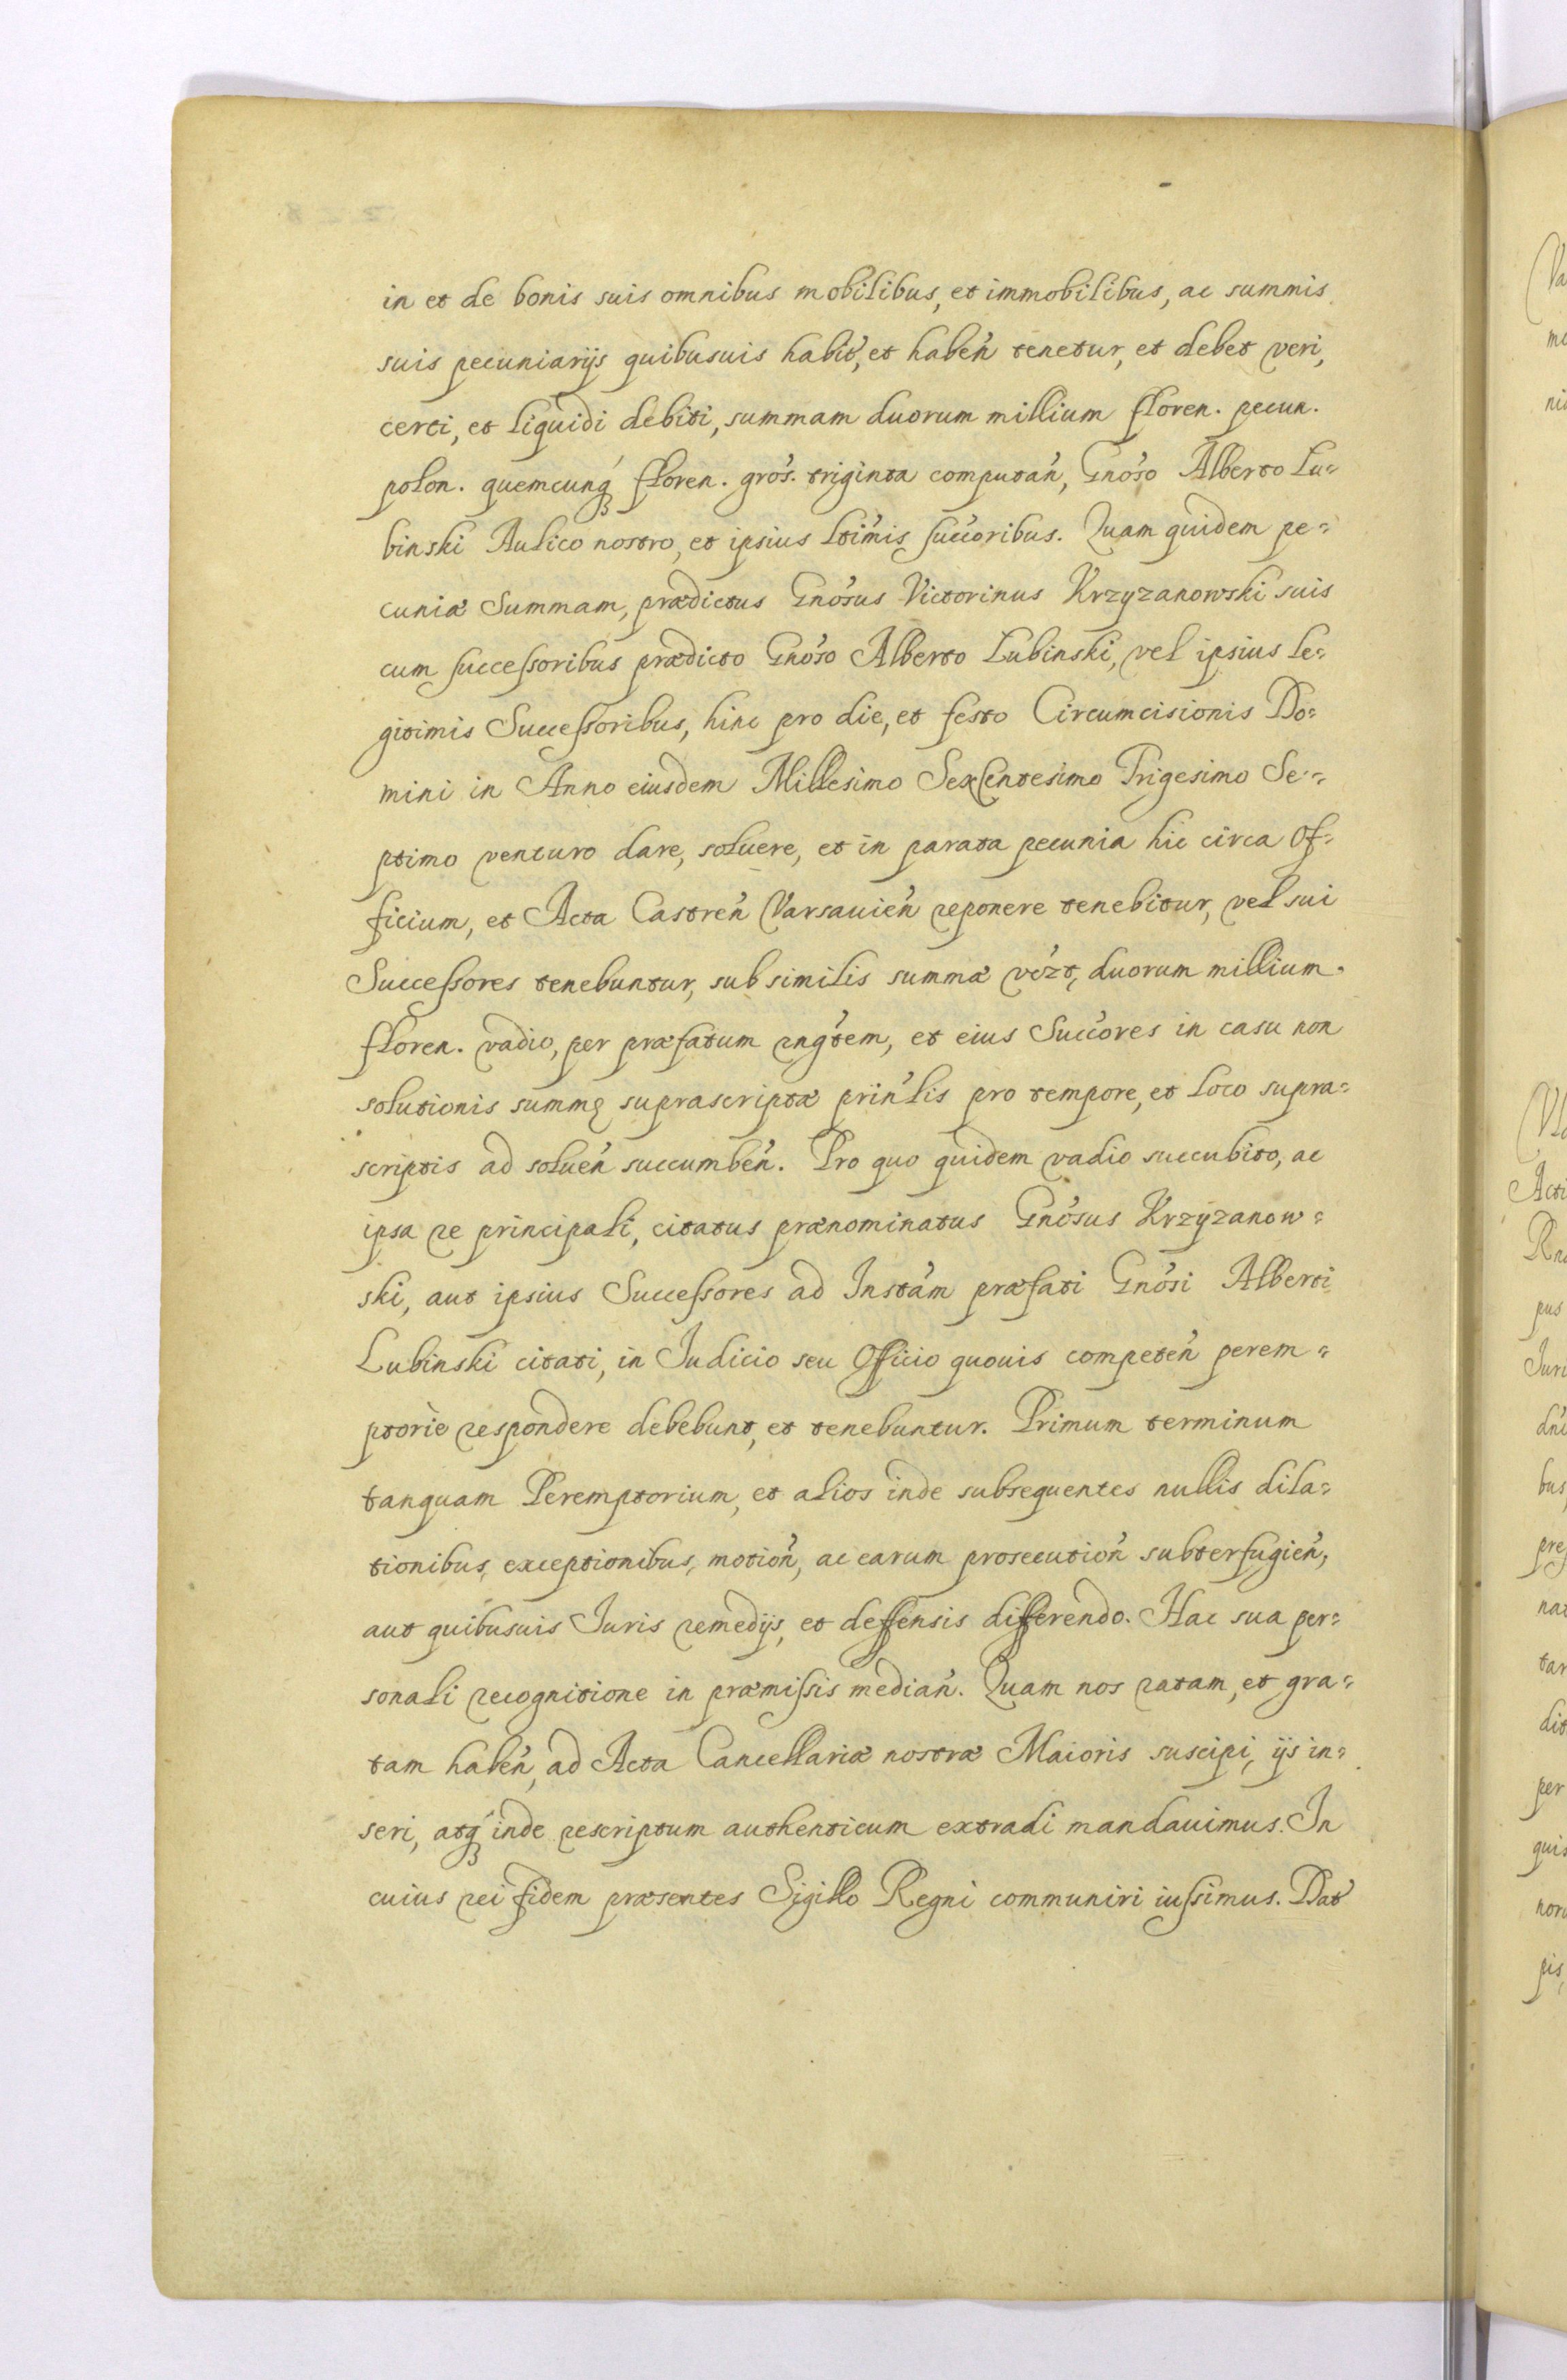 in et de bonis suis omnibus mobilibus, et immobilibus, ac summis
suis pecuniarijs quibusuis habit, et haben tenetur, et debet veri,
certi, et liquidi debiti, summam duorum millium floren. pecun.
polon. quemcunq floren. gros. triginta computan, Gnoso Alberto Lu=
binski Aulico nostro, et ipsius ltimis succoribus. Quam quidem pe=
cuniæ Summam, prædictus Gnosus Victorinus Krzyzanowski suis
cum successoribus prædicto Gnoso Alberto Lubinski, vel ipsius le=
gitimis Successoribus, hinc pro die, et festo Circumcisionis Do=
mini in Anno eiusdem Millesimo Sexcentesimo Trigesimo Se=
ptimo venturo dare, soluere, et in parata pecunia hic circa Of=
ficium, et Acta Castren Varsauien reponere tenebitur, vel sui
Successores tenebuntur, sub similis summæ vězt, duorum millium
floren. vadio, per præfatum rngtem, et eius Succores in casu non
solutionis summę suprascriptæ prinlis pro tempore, et loco supra=
scriptis ad soluen succumben. Pro quo quidem vadio succubito, ac
ipsa re principali, citatus prænominatus Gnosus Krzyzanow=
ski, aut ipsius Successores ad Instam præfati Gnosi Alberti
Lubinski citati, in Iudicio seu Officio quouis competen perem=
ptoriè respondere debebunt, et tenebuntur. Primum terminum
tanquam Peremptorium, et alios inde subsequentes nullis dila=
tionibus, exceptionibus, motion, ac earum prosecution subterfugien,
aut quibusuis Iuris remedijs, et deffensis differendo. Hac sua per=
sonali recognitione in præmissis median. Quam nos ratam, et gra=
tam haben, ad Acta Cancellariæ nostræ Maioris suscipi, ijs in=
seri, atq inde rescriptum authenticum extradi mandauimus. In
cuius rei fidem præsentes Sigillo Regni communiri iussimus. Dat